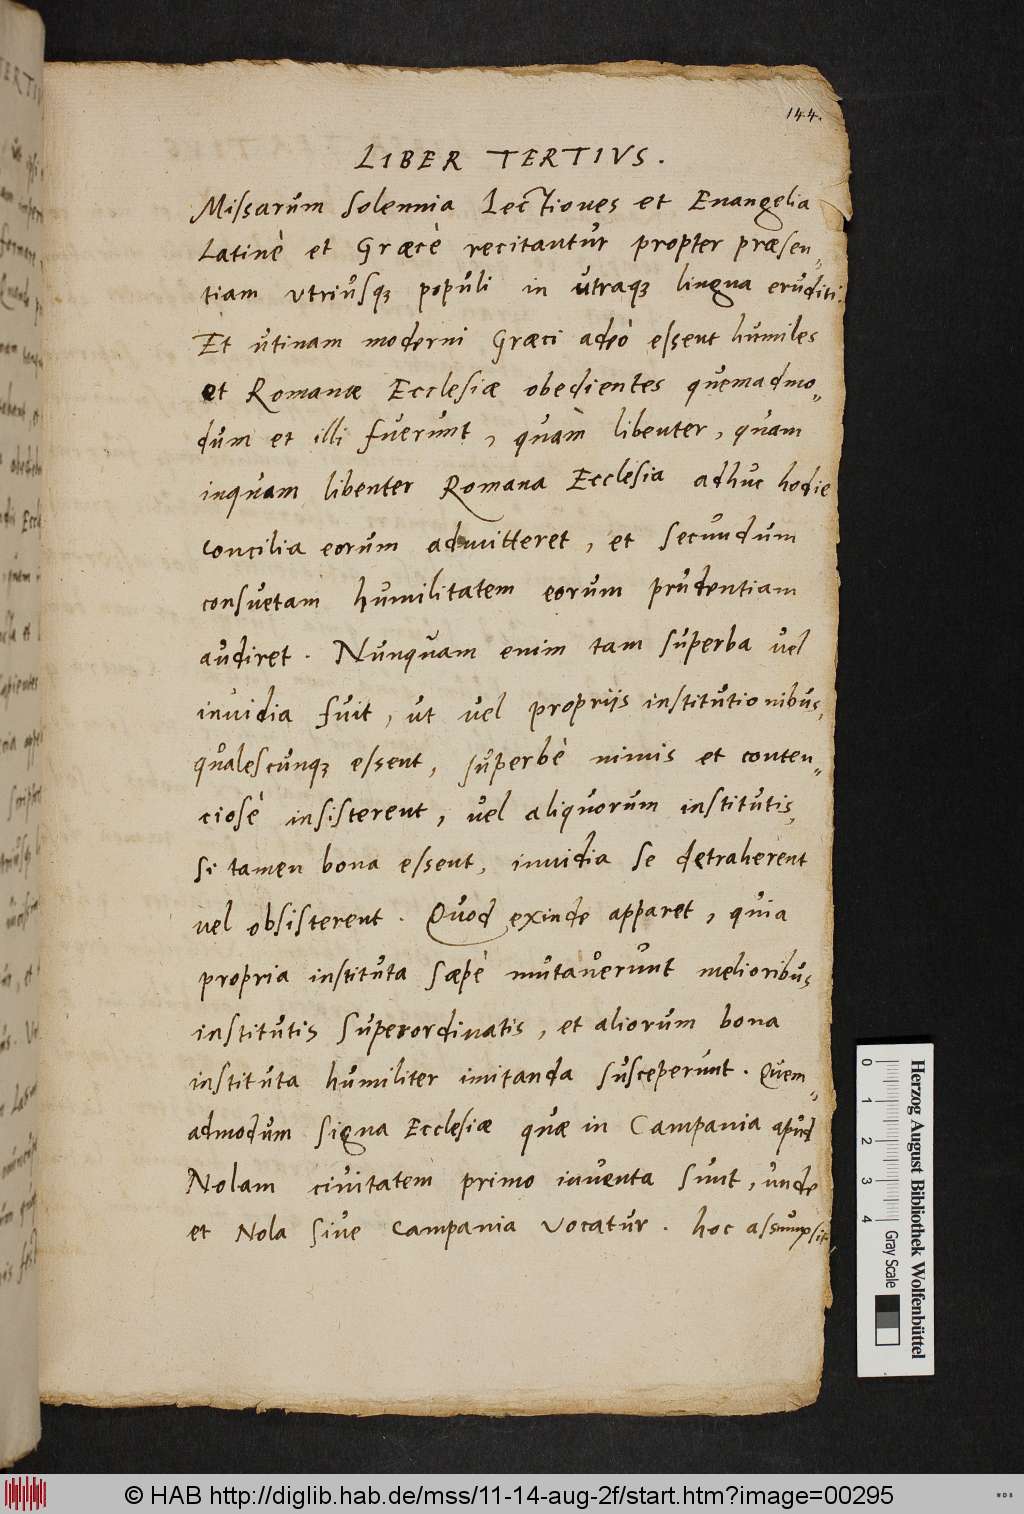 144.
LIBER TERTIVS.
Missarum solennia Lectiones et Euangelia
Latinè et Græcè recitantur propter præsen„
tiam vtriusq; populi in utraq; lingua eruditi.
Et utinam moderni Græci adeò essent humiles
et Romanæ Ecclesiæ obedientes quemadmo„
dum et illi fuerunt, quàm libenter, quam
inquam libenter Romana Ecclesia adhuc hodie
concilia eorum admitteret, et secundum
consuetam humilitatem eorum prudentiam
audiret. Nunquam enim tam superba vel
inuidia fuit, ut vel propriis institutionibus,
qualescunq; essent, superbè nimis et conten„
ciosè insisterent, vel aliquorum institutis,
si tamen bona essent, inuidia se detraherent
vel obsisterent. Quod exinde apparet, quia
propria instituta sæpè mutauerunt melioribus
institutis superordinatis, et aliorum bona
instituta humiliter imitanda susceperunt. Quem„
admodum signa Ecclesiæ quæ in Campania apud
Nolam ciuitatem primo inuenta sunt, vnde
et Nola siue Campania vocatur. hoc assumpsit
Herzog August Bibliothek Wolfenbüttel
0 1 2 3 4 Gray Scale
© HAB http://diglib.hab.de/mss/11-14-aug-2f/start.htm?image=00295